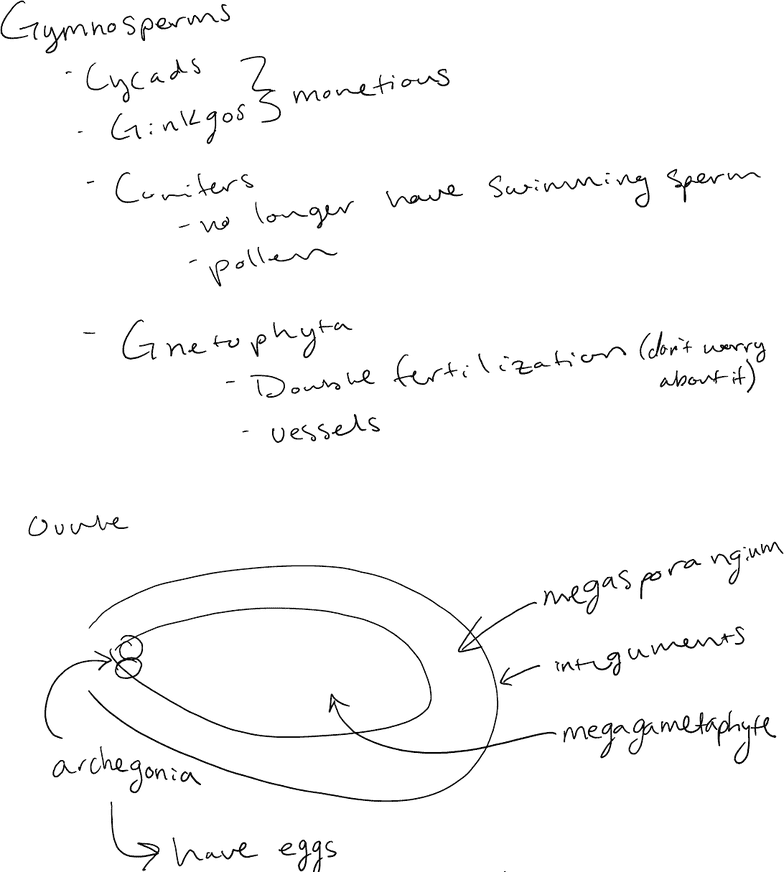 Gymnosperms
- Cycads
- Ginkgos } monetious
- Conifers
- no longer have swimming sperm
- pollen
- Gnetophyta
- Double fertilization (don't worry
about it)
- vessels
Ovule
megasporangium
integuments
megagametaphyte
archegonia
have eggs